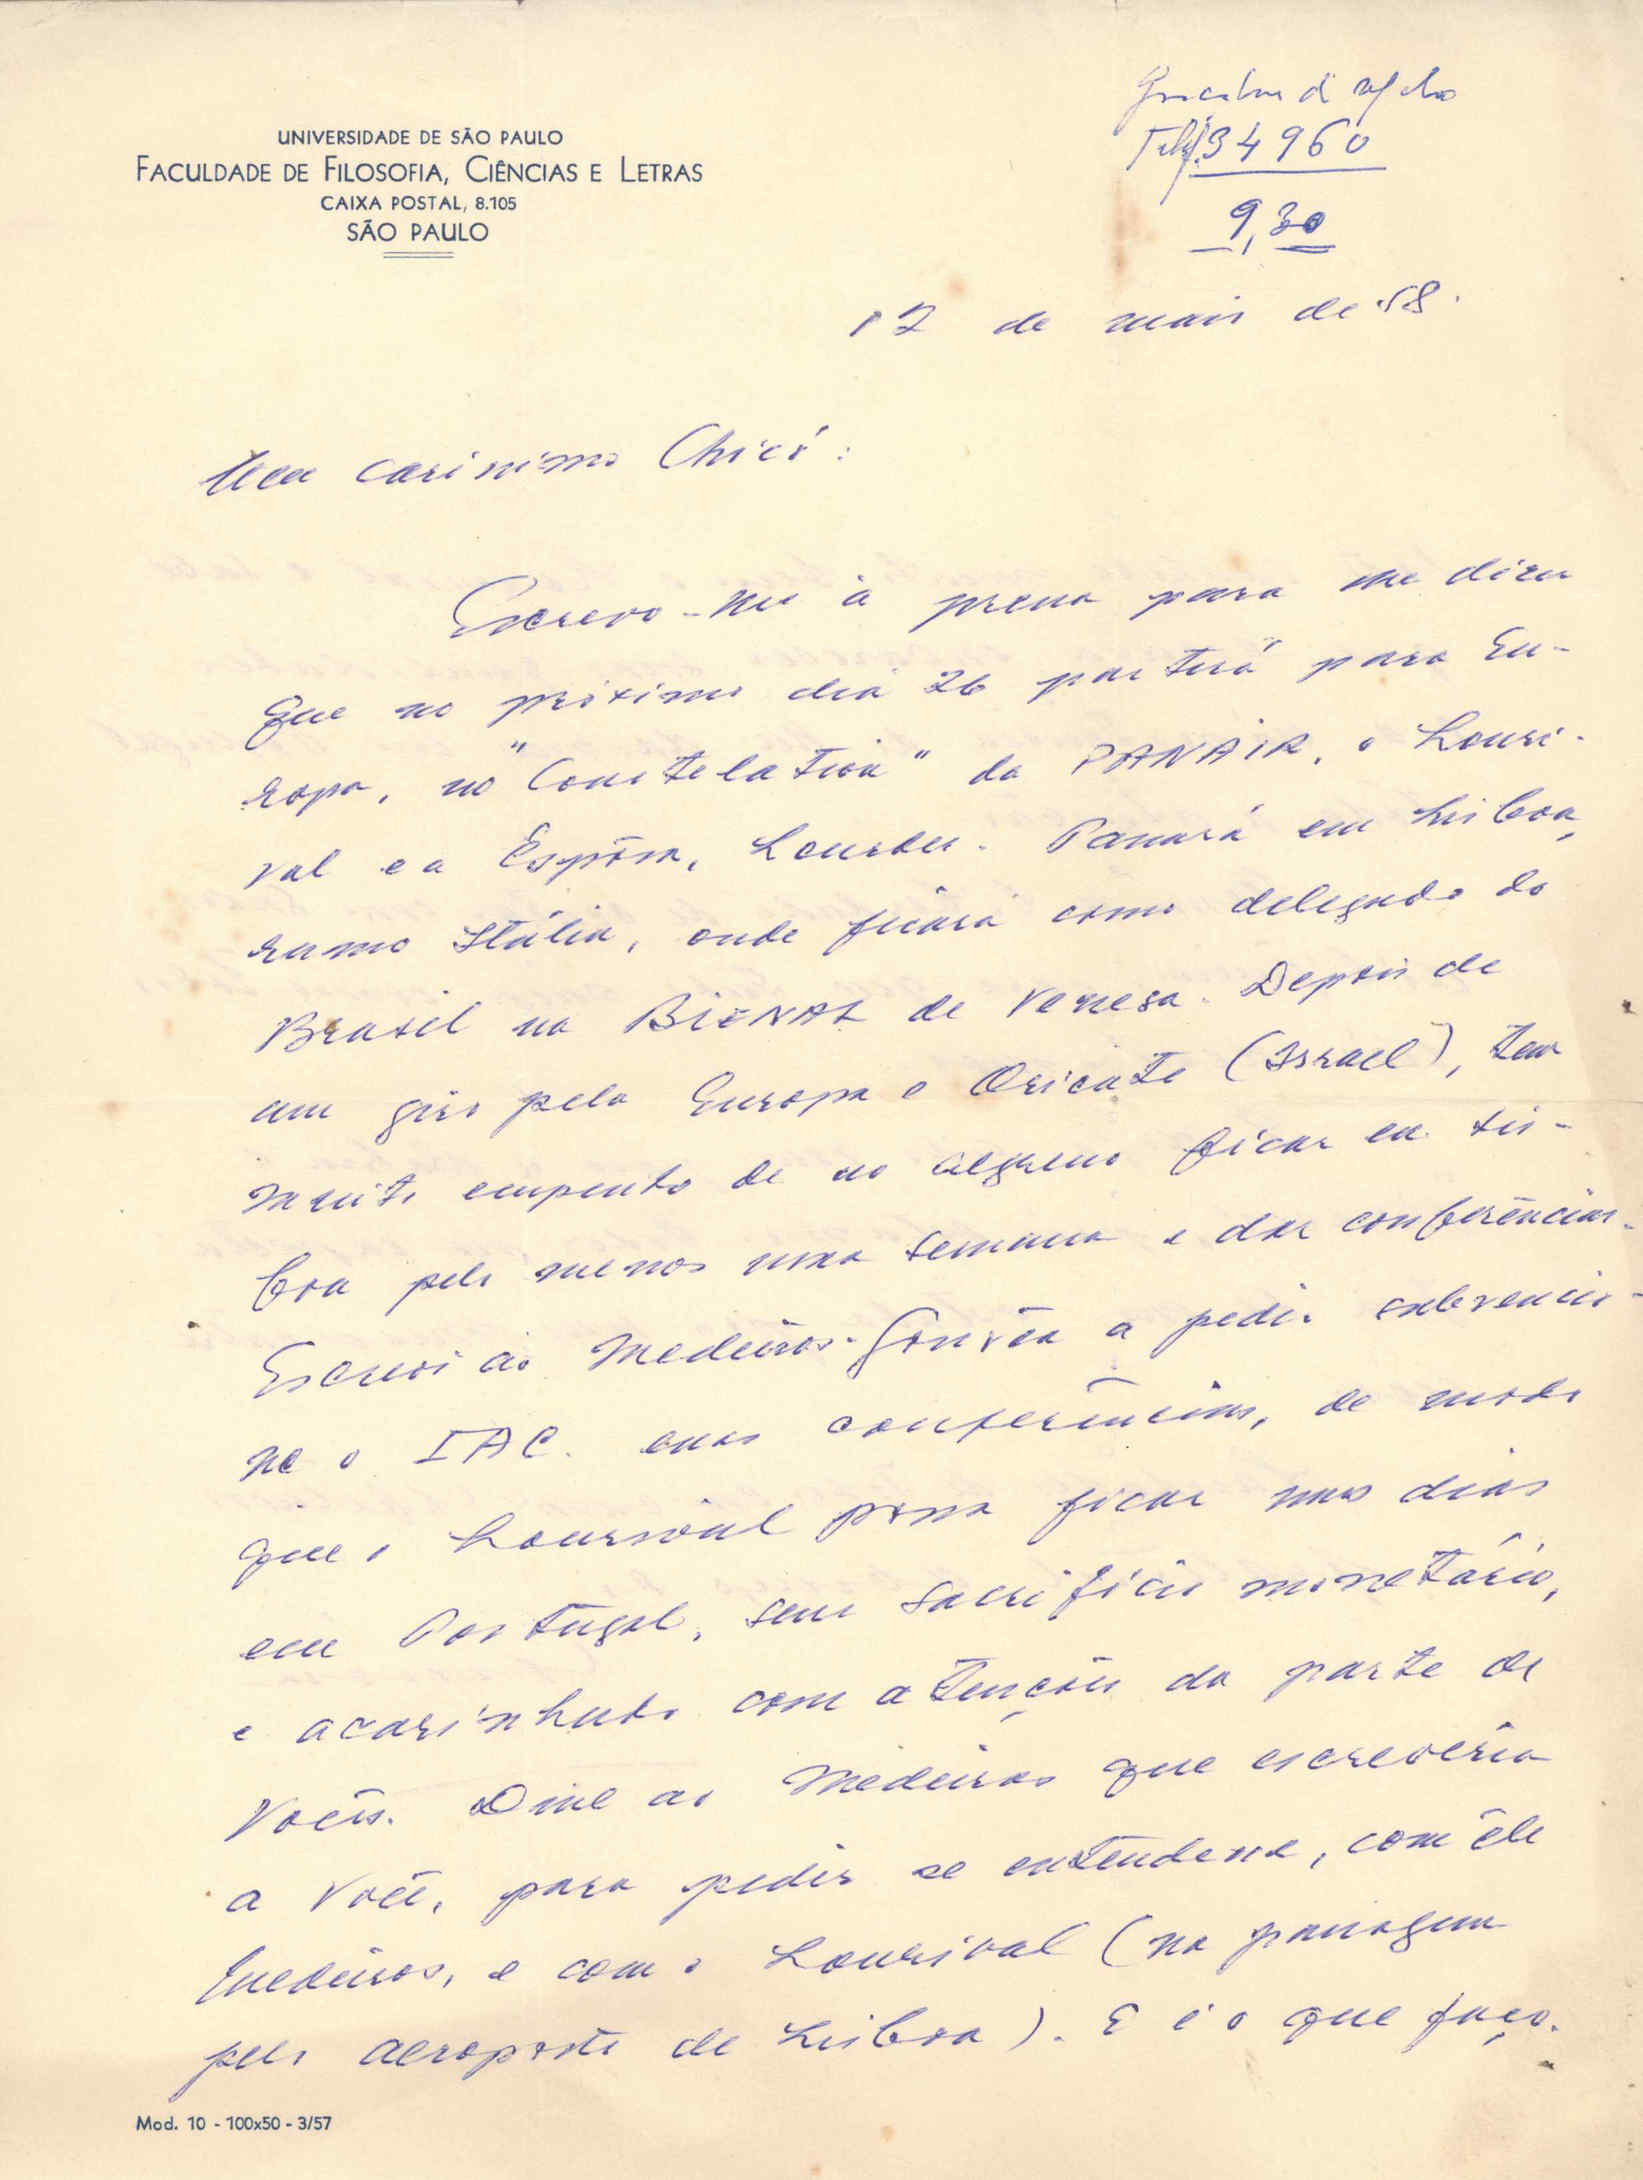 Telef. 34960
9,30
UNIVERSIDADE DE SÃO PAULO
FACULDADE DE FILOSOFIA, CIÊNCIAS E LETRAS
CAIXA POSTAL, 8.105
SÃO PAULO
12 de maio de 58.
Meu caríssimo Chicó:
Escrevo-lhe à pressa para lhe dizer
que no próximo dia 26 partirá para Eu-
ropa, no "Constelation" da PANAIR, o Louri-
val e a Espôsa, Lourdes. Passará em Lisboa,
rumo Itália, onde ficará como delegado do
Brasil na BIENAL de Veneza. Depois de
um giro pela Europa e Oriente (Israel), tem
muito empenho de no regresso ficar em Lis-
boa pelo menos uma semana e dar conferências.
Escrevi ao Medeiros-Gouvêa a pedir subvencio-
ne o IAC. suas conferências, de modo
que o Lourival possa ficar uns dias
em Portugal, sem sacrifício monetário,
e acarinhado com atenções da parte de
Vocês. Disse ao Medeiros que escreveria
a Você, para pedir se entendesse, com êle
Medeiros, e com o Lourival (na passagem
pelo aeroporto de Lisboa). E é o que faço.
Mod. 10 - 100x50 - 3/57